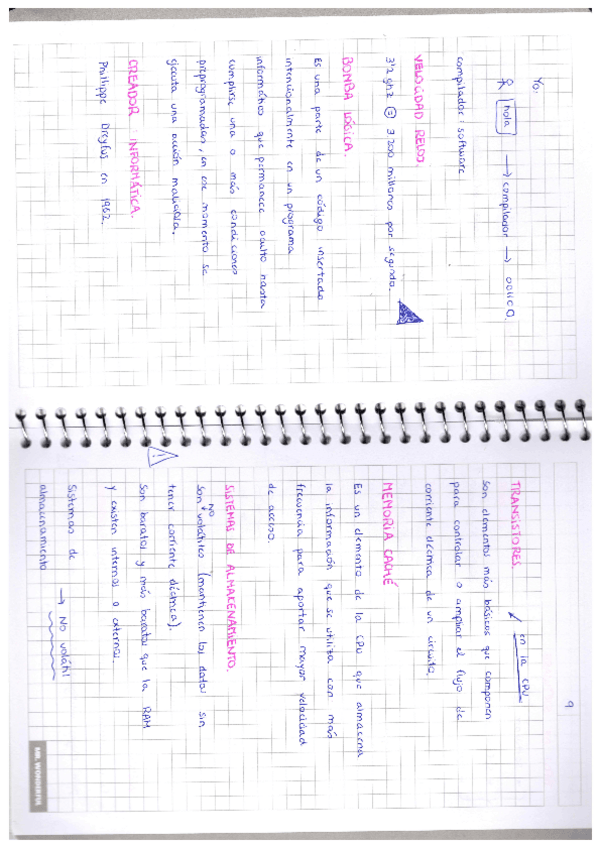 Yo:
hola → compilador → 001100.
compilador: software
VELOCIDAD RELOJ.
3'2 ghz = 3.200 millones por segundo.
BOMBA LÓGICA.
Es una parte de un código insertado
intencionalmente en un programa
informático que permanece oculto hasta
cumplirse una o más condiciones
preprogramadas, en ese momento se
ejecuta una acción maliciosa.
CREADOR INFORMÁTICA.
Philippe Dreyfus en 1962.
9
TRANSISTORES. en la CPU
Son elementos más básicos que componen
para controlar o ampliar el flujo de
corriente eléctrica de un circuito.
MEMORIA CACHÉ
Es un elemento de la CPU que almacena
la información que se utiliza con más
frecuencia para aportar mayor velocidad
de acceso.
SISTEMAS DE ALMACENAMIENTO.
Son NO volátiles (mantienen los datos sin
tener corriente eléctrica).
Son baratos y más baratos que la RAM
y existen internos o externos.
Sistemas de
almacenamiento → No volátil
MR. WONDERFUL